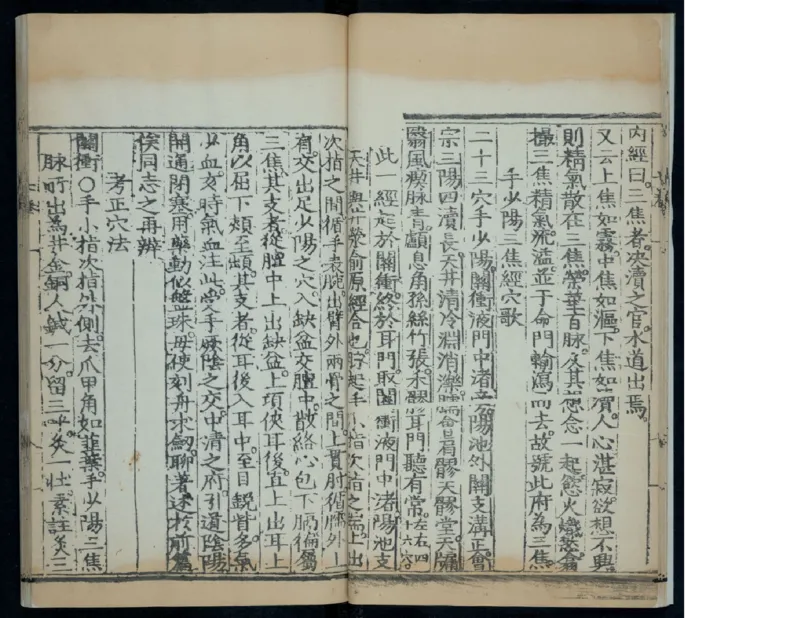 內經曰三焦者決瀆之官水道出焉
又云上焦如霧中焦如漚下焦如瀆人心湛寂欲想不興
則精氣散在三焦榮華百脉及其想念一起慾火熾然翕
撮三焦精氣流溢並于命門輸瀉而去故號此府爲三焦
手少陽三焦經穴歌
二十三穴手少陽關衝液門中渚旁陽池外關支溝正會
宗三陽四瀆長天井清冷淵消濼臑會肩髎天髎堂天牖
翳風瘈脉青顱息角孫絲竹張禾髎耳門聽有常左右四十六穴
此一經起於關衝終於耳門取關衝液門中渚陽池支
天井與井滎俞原經合也脉起手小指次指之端上出
次指之間循手表腕出臂外兩骨之間上貫肘循臑外上
肩交出足少陽之穴入缺盆交膻中散絡心包下膈徧屬
三焦其支者從膻中上出缺盆上項俠耳後直上出耳上
角以屈下頰至䪼其支者從耳後入耳中至目銳眥多氣
少血亥時氣血注此受手厥陰之交中清之府引道陰陽
開通閉塞用藥動似盤珠毋使刻舟求劍聊著述於前篇
俟同志之再辨
考正穴法
關衝○手小指次指外側去爪甲角如韮葉手少陽三焦
脉所出爲井金銅人鍼一分留三呼灸一壯素註灸三